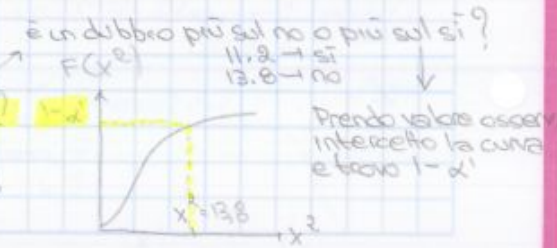 è un dubbio più sul no o più sul sì?
F(x²)
11.2 → sì
13.8 → no
1-α'
Prendo valore osserv
intercetto la curva
e trovo 1-α'
x²=13,8
x²